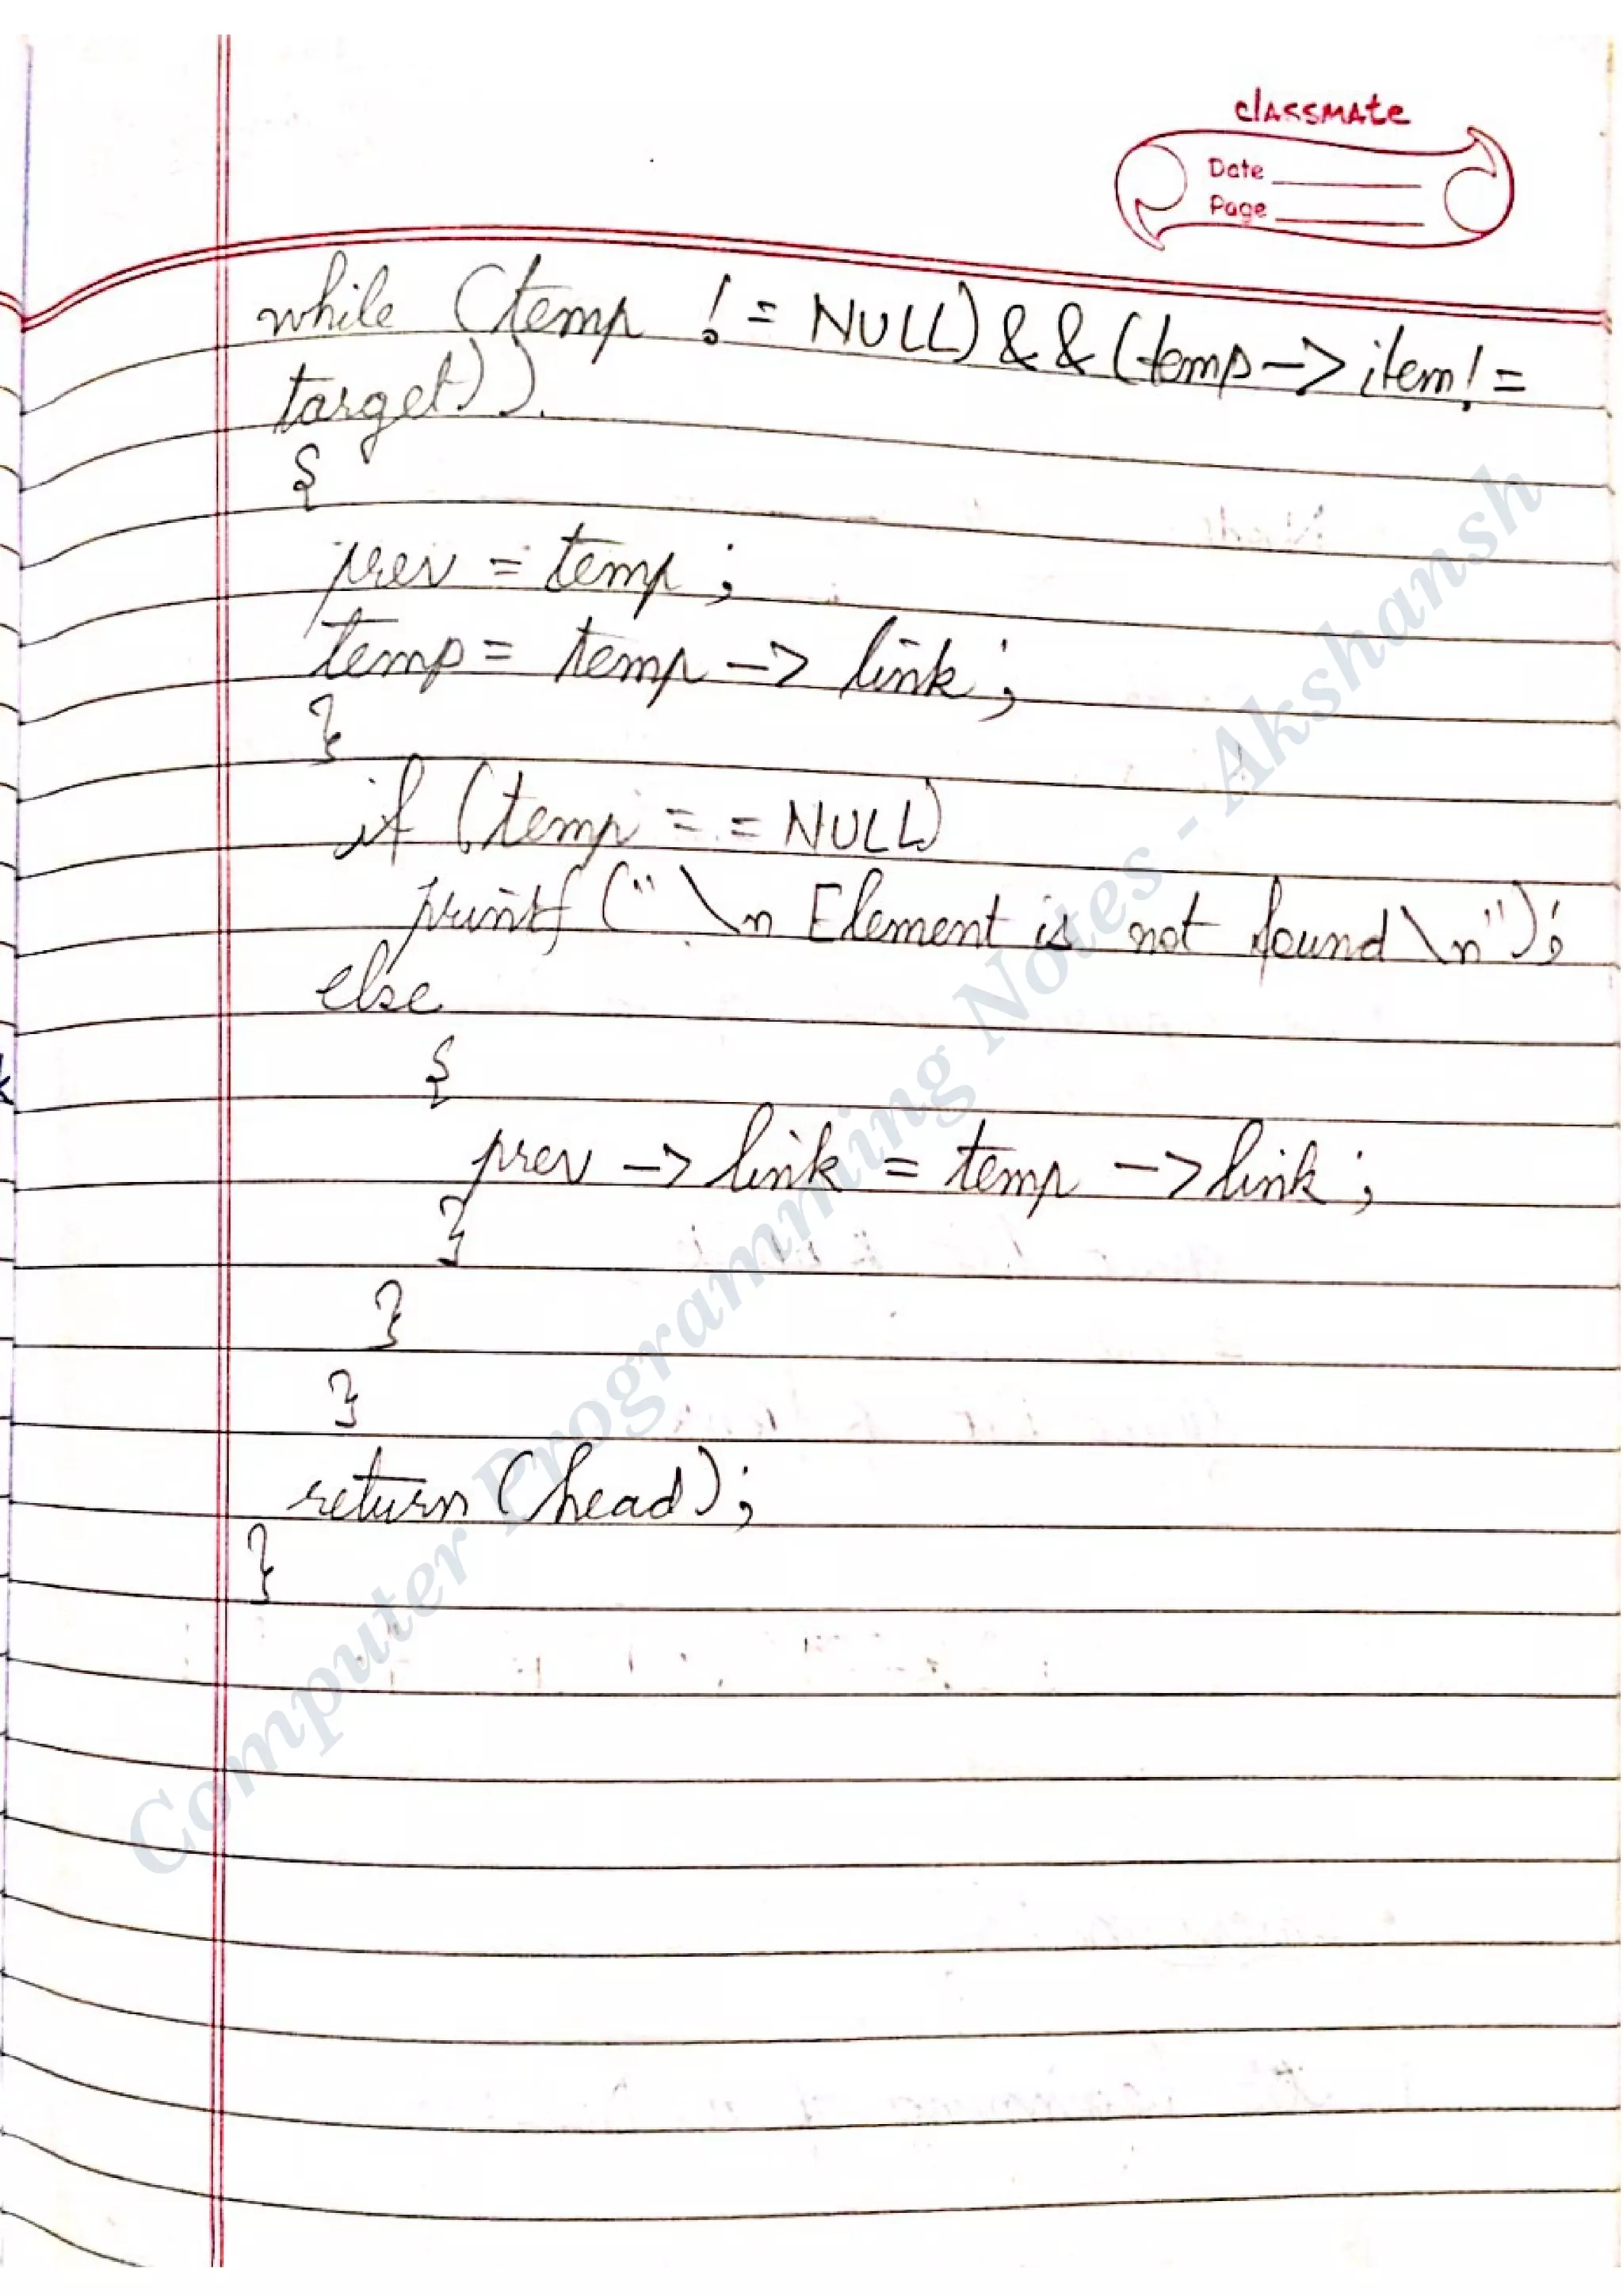 classmate
Date
Page
while (temp != NULL) && (temp -> item! =
target)).
{
prev = temp;
temp = temp -> link;
}
if (temp = = NULL)
printf (" \n Element is not found \n");
else
{
prev -> link = temp -> link;
}
}
}
return (head);
}
Computer Programming Notes - Akshansh